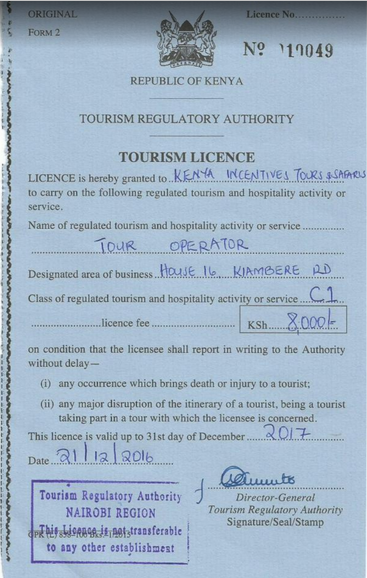 ORIGINAL Licence No.
FORM 2
Nº 019049
REPUBLIC OF KENYA
TOURISM REGULATORY AUTHORITY
TOURISM LICENCE
LICENCE is hereby granted to KENYA INCENTIVES TOURS & SAFARIS
to carry on the following regulated tourism and hospitality activity or
service.
Name of regulated tourism and hospitality activity or service
TOUR OPERATOR
Designated area of business HOUSE 16, KIAMBERE RD
Class of regulated tourism and hospitality activity or service C1
licence fee KSh 8,000/-
on condition that the licensee shall report in writing to the Authority
without delay—
(i) any occurrence which brings death or injury to a tourist;
(ii) any major disruption of the itinerary of a tourist, being a tourist
taking part in a tour with which the licensee is concerned.
This licence is valid up to 31st day of December 2017
Date 21/12/2016
Director-General
Tourism Regulatory Authority
Signature/Seal/Stamp
Tourism Regulatory Authority
NAIROBI REGION
This Licence is not transferable
to any other establishment